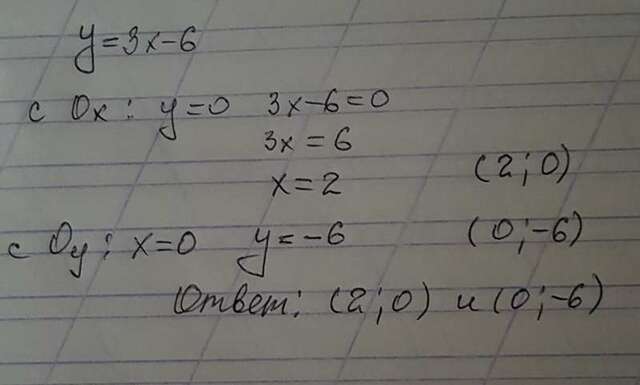 y=3x-6
с Ox: y=0 3x-6=0
3x=6
x=2 (2;0)
с Oy: x=0 y=-6 (0;-6)
Ответ: (2;0) и (0;-6)